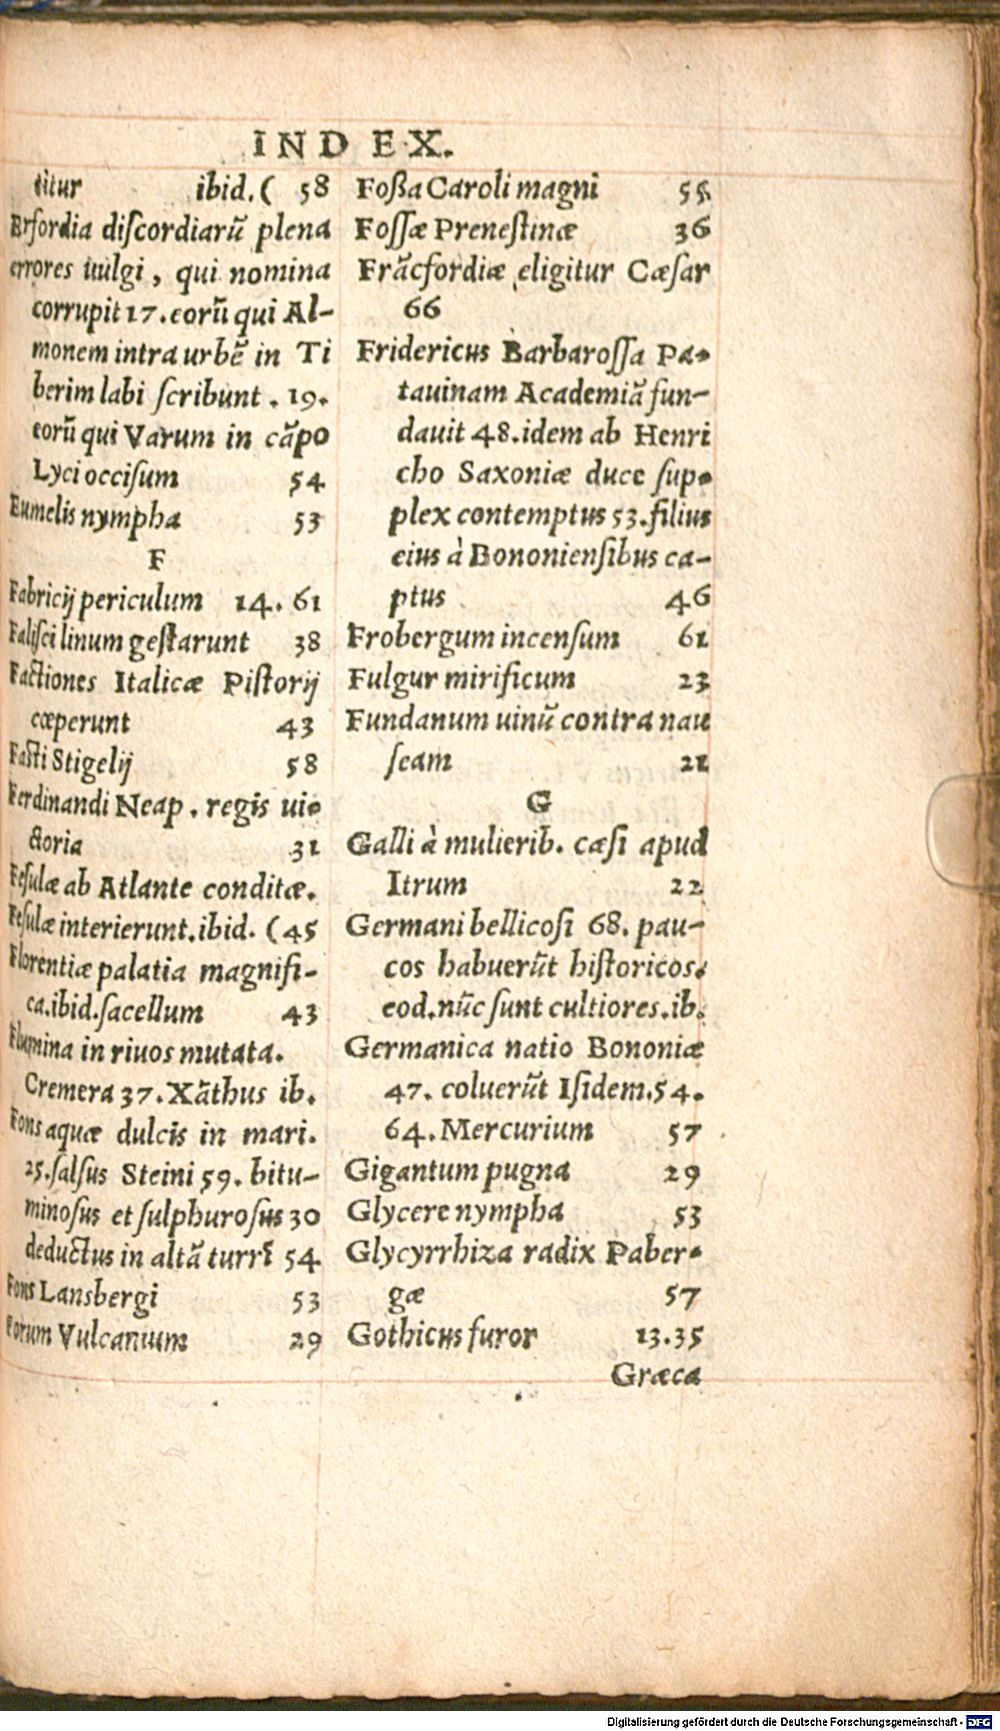 INDEX.
titur ibid. ( 58
Erfordia diſcordiarũ plena
errores uulgi, qui nomina
corrupit 17. eorũ qui Al-
monem intra urbẽ in Ti
berim labi ſcribunt . 19.
eorũ qui Varum in cãpo
Lyci occiſum 54
Eumelis nympha 53
F
Fabricij periculum 14. 61
Faliſci linum geſtarunt 38
Factiones Italicæ Piſtorij
cœperunt 43
Faſti Stigelij 58
Ferdinandi Neap. regis ui-
ctoria 31
Feſulæ ab Atlante conditæ.
Feſulæ interierunt. ibid. (45
Florentiæ palatia magnifi-
ca. ibid. ſacellum 43
Flumina in riuos mutata.
Cremera 37. Xãthus ib.
Fons aquæ dulcis in mari.
25. ſalſus Steini 59. bitu-
minoſus et ſulphuroſus 30
deductus in altã turrĩ 54
Fons Lansbergi 53
Forum Vulcanium 29
Foßa Caroli magni 55
Foſſæ Preneſtinæ 36
Frãcfordiæ eligitur Cæſar
66
Fridericus Barbaroſſa Pa-
tauinam Academiã fun-
dauit 48. idem ab Henri
cho Saxoniæ duce ſup-
plex contemptus 53. filius
eius à Bononienſibus ca-
ptus 46
Frobergum incenſum 61
Fulgur mirificum 23
Fundanum uinũ contra nau
ſeam 21
G
Galli à mulierib. cæſi apud
Itrum 22
Germani bellicoſi 68. pau-
cos habuerũt hiſtoricos.
eod. nũc ſunt cultiores. ib.
Germanica natio Bononiæ
47. coluerũt Iſidem. 54.
64. Mercurium 57
Gigantum pugna 29
Glycere nympha 53
Glycyrrhiza radix Paber-
gæ 57
Gothicus furor 13. 35
Græca
Digitalisierung gefördert durch die Deutsche Forschungsgemeinschaft - DFG